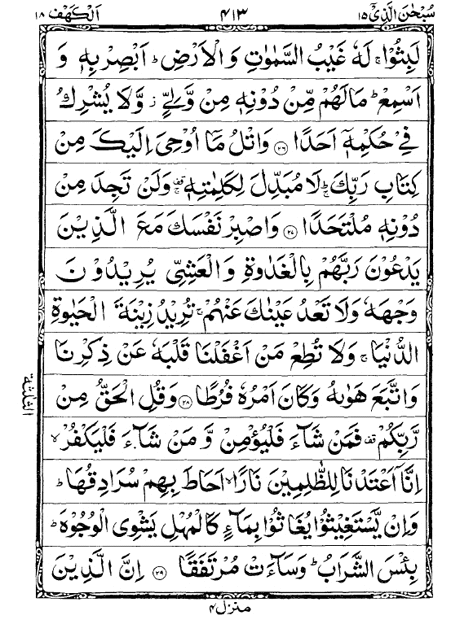 سُبْحٰنَ الَّذِیْۤ ۱۵ ۴۱۳ اَلْکَهْف ۱۸
لَبِثُوْا ۚ لَهٗ غَیْبُ السَّمٰوٰتِ وَالْاَرْضِ ؕ اَبْصِرْ بِهٖ وَ
اَسْمِعْ ؕ مَا لَهُمْ مِّنْ دُوْنِهٖ مِنْ وَّلِیٍّ ؗ وَّلَا یُشْرِكُ
فِیْ حُکْمِهٖۤ اَحَدًا ﴿۲۶﴾ وَاتْلُ مَاۤ اُوْحِیَ اِلَیْكَ مِنْ
کِتَابِ رَبِّكَ ۚؕ لَا مُبَدِّلَ لِکَلِمٰتِهٖ ۚ۫ وَلَنْ تَجِدَ مِنْ
دُوْنِهٖ مُلْتَحَدًا ﴿۲۷﴾ وَاصْبِرْ نَفْسَكَ مَعَ الَّذِیْنَ
یَدْعُوْنَ رَبَّهُمْ بِالْغَدٰوةِ وَالْعَشِیِّ یُرِیْدُوْنَ
وَجْهَهٗ وَلَا تَعْدُ عَیْنٰكَ عَنْهُمْ ۚ تُرِیْدُ زِیْنَةَ الْحَیٰوةِ
الدُّنْیَا ۚ وَلَا تُطِعْ مَنْ اَغْفَلْنَا قَلْبَهٗ عَنْ ذِکْرِنَا
وَاتَّبَعَ هَوٰىهُ وَکَانَ اَمْرُهٗ فُرُطًا ﴿۲۸﴾ وَقُلِ الْحَقُّ مِنْ
رَّبِّکُمْ ۫ فَمَنْ شَآءَ فَلْیُؤْمِنْ وَّمَنْ شَآءَ فَلْیَکْفُرْ ۙ
اِنَّاۤ اَعْتَدْنَا لِلظّٰلِمِیْنَ نَارًا ۙ اَحَاطَ بِهِمْ سُرَادِقُهَا ؕ
وَاِنْ یَّسْتَغِیْثُوْا یُغَاثُوْا بِمَآءٍ کَالْمُهْلِ یَشْوِی الْوُجُوْهَ ؕ
بِئْسَ الشَّرَابُ ؕ وَسَآءَتْ مُرْتَفَقًا ﴿۲۹﴾ اِنَّ الَّذِیْنَ
الثلثة
منزل ۴